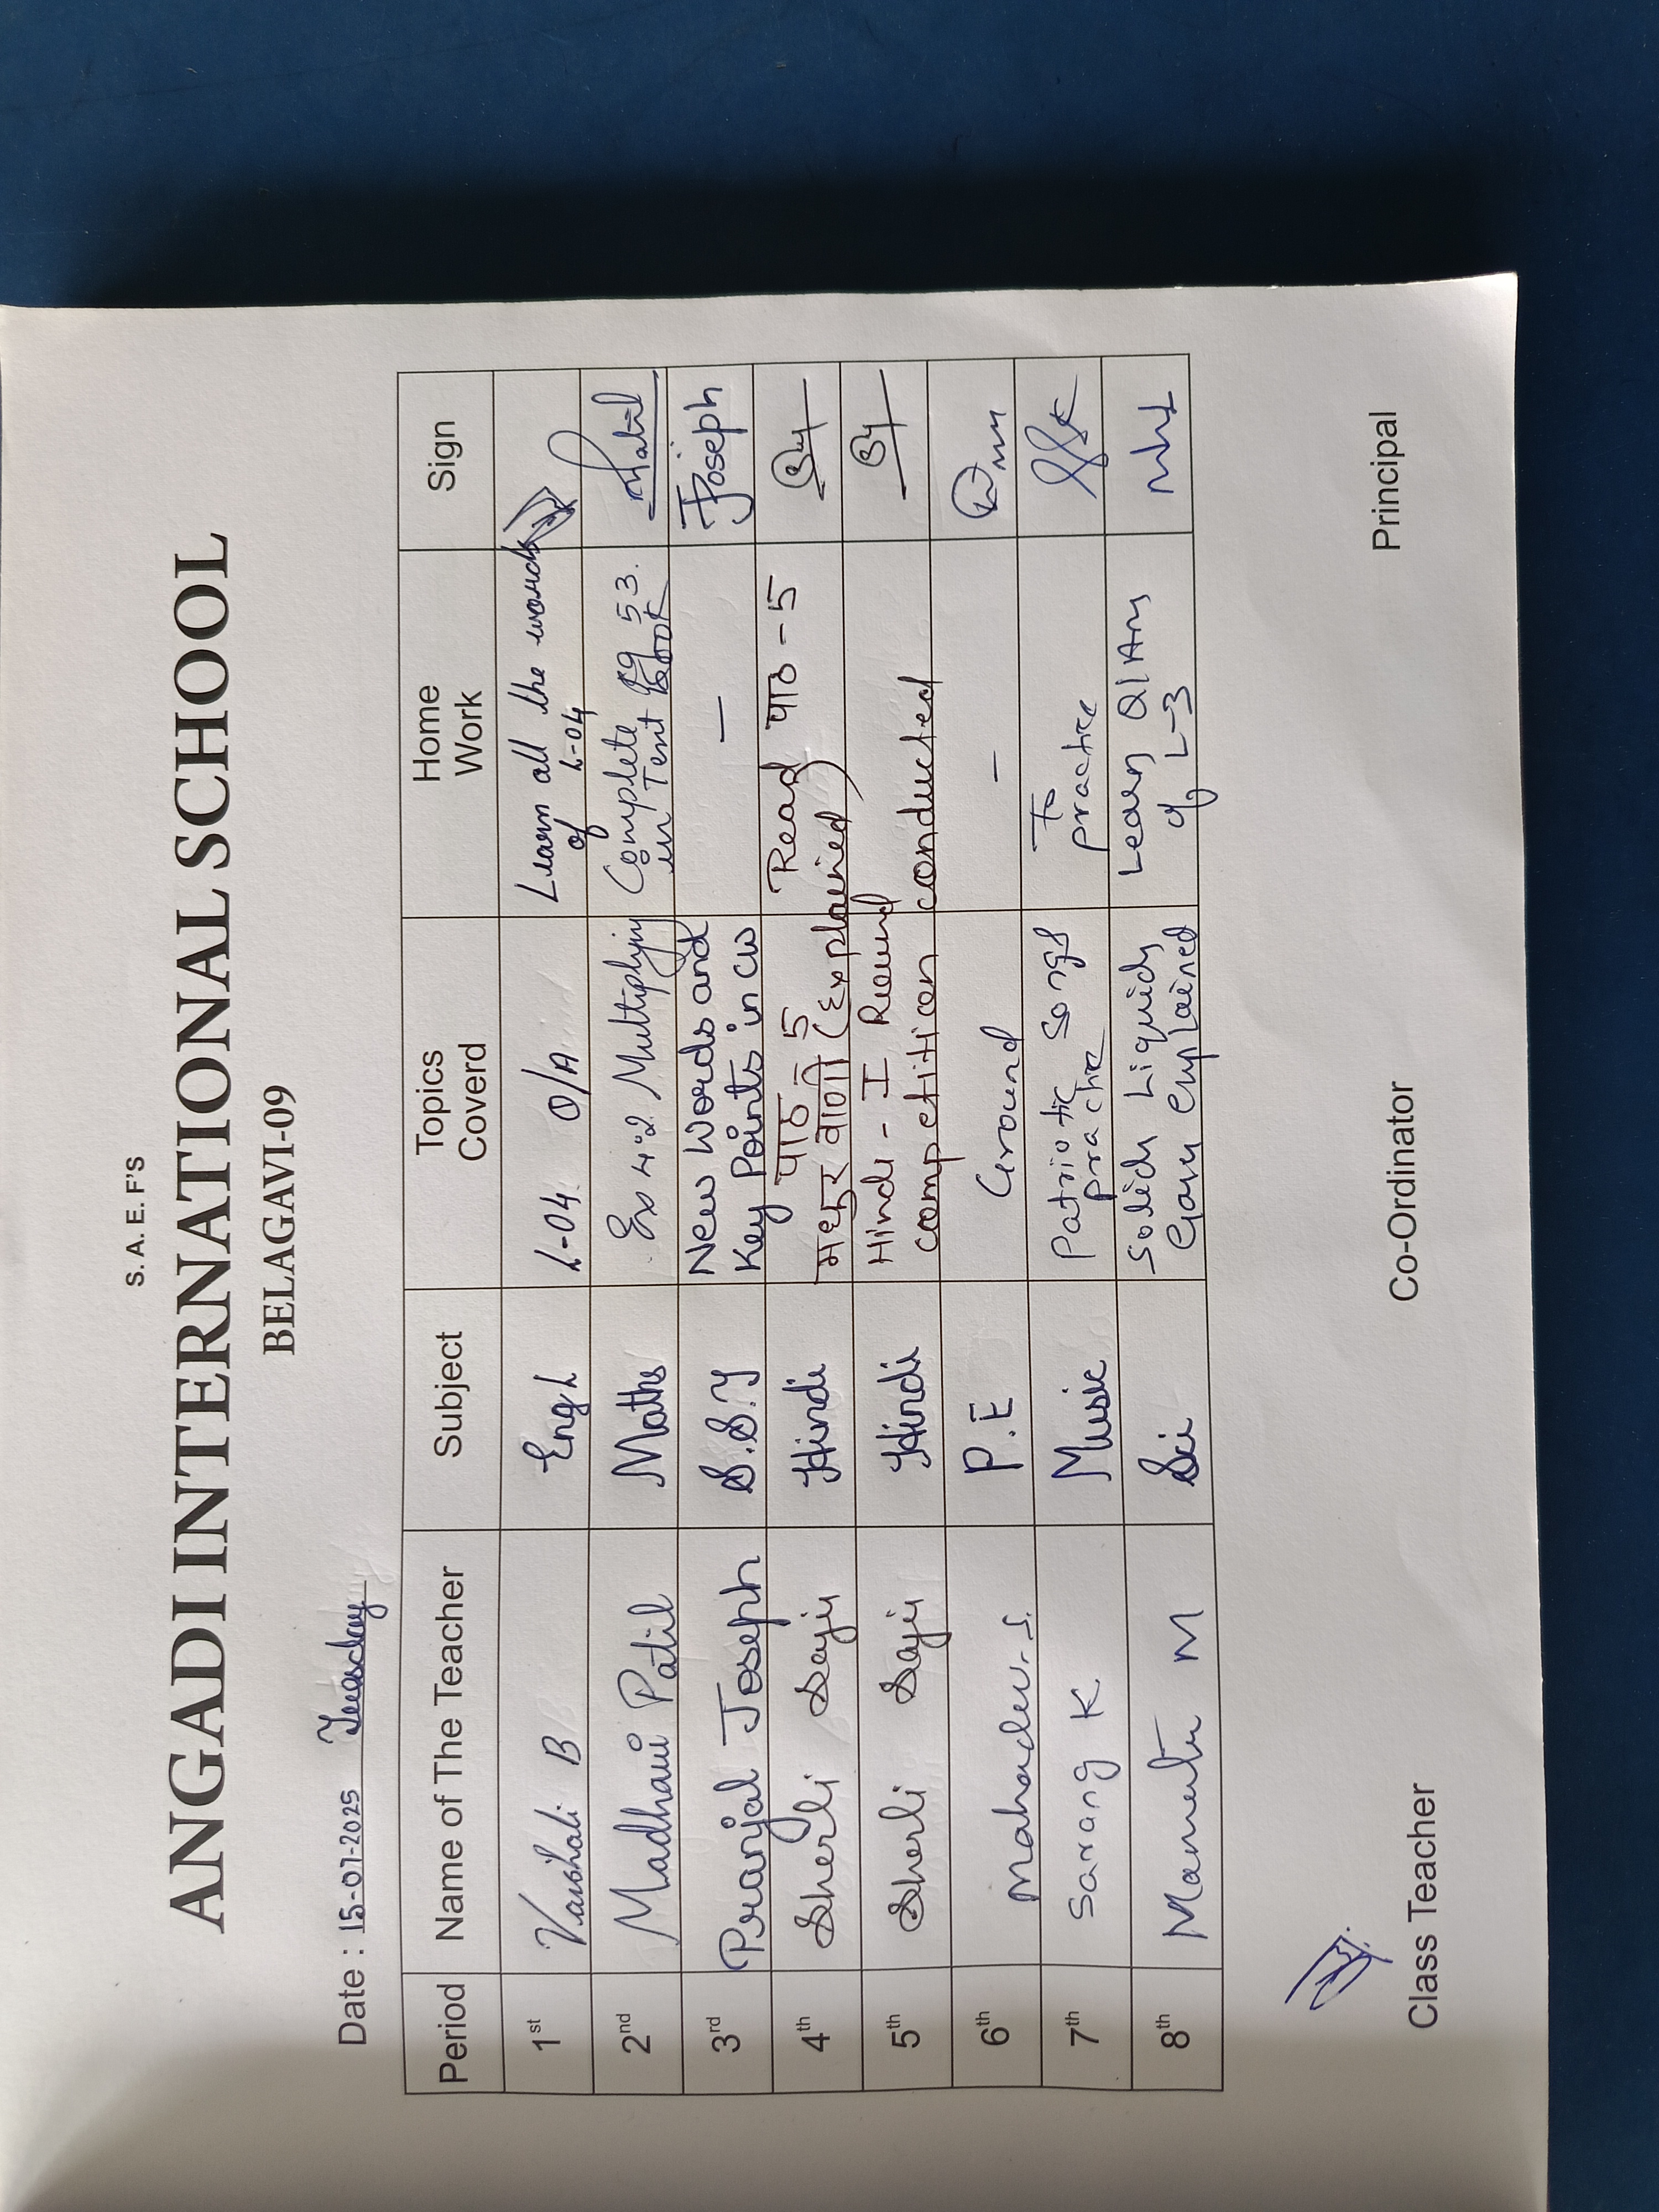 S. A. E. F'S
ANGADI INTERNATIONAL SCHOOL
BELAGAVI-09
Date : 15-07-2025 Tuesday
Period Name of The Teacher Subject Topics Coverd Home Work Sign
1st Vaishali B Engl L-04 O/A Learn all the words of L-04
2nd Madhavi Patil Maths Ex 4.2 Multiplying Complete Pg 53. in Text Book Patil
3rd Pranjal Joseph S.S.T New Words and Key Points in CW — Joseph
4th Sherli Saji Hindi पाठ 5 मधुर वाणी (Explained) Read पाठ - 5
5th Sherli Saji Hindi Hindi - I Round competition conducted
6th Mahadev. S. P.E Ground -
7th Sarang K Music Patriotic songs practice To practice
8th Mamata M Sci Solids Liquids Gases Explained Learn Q/Ans of L-3
Class Teacher Co-Ordinator Principal